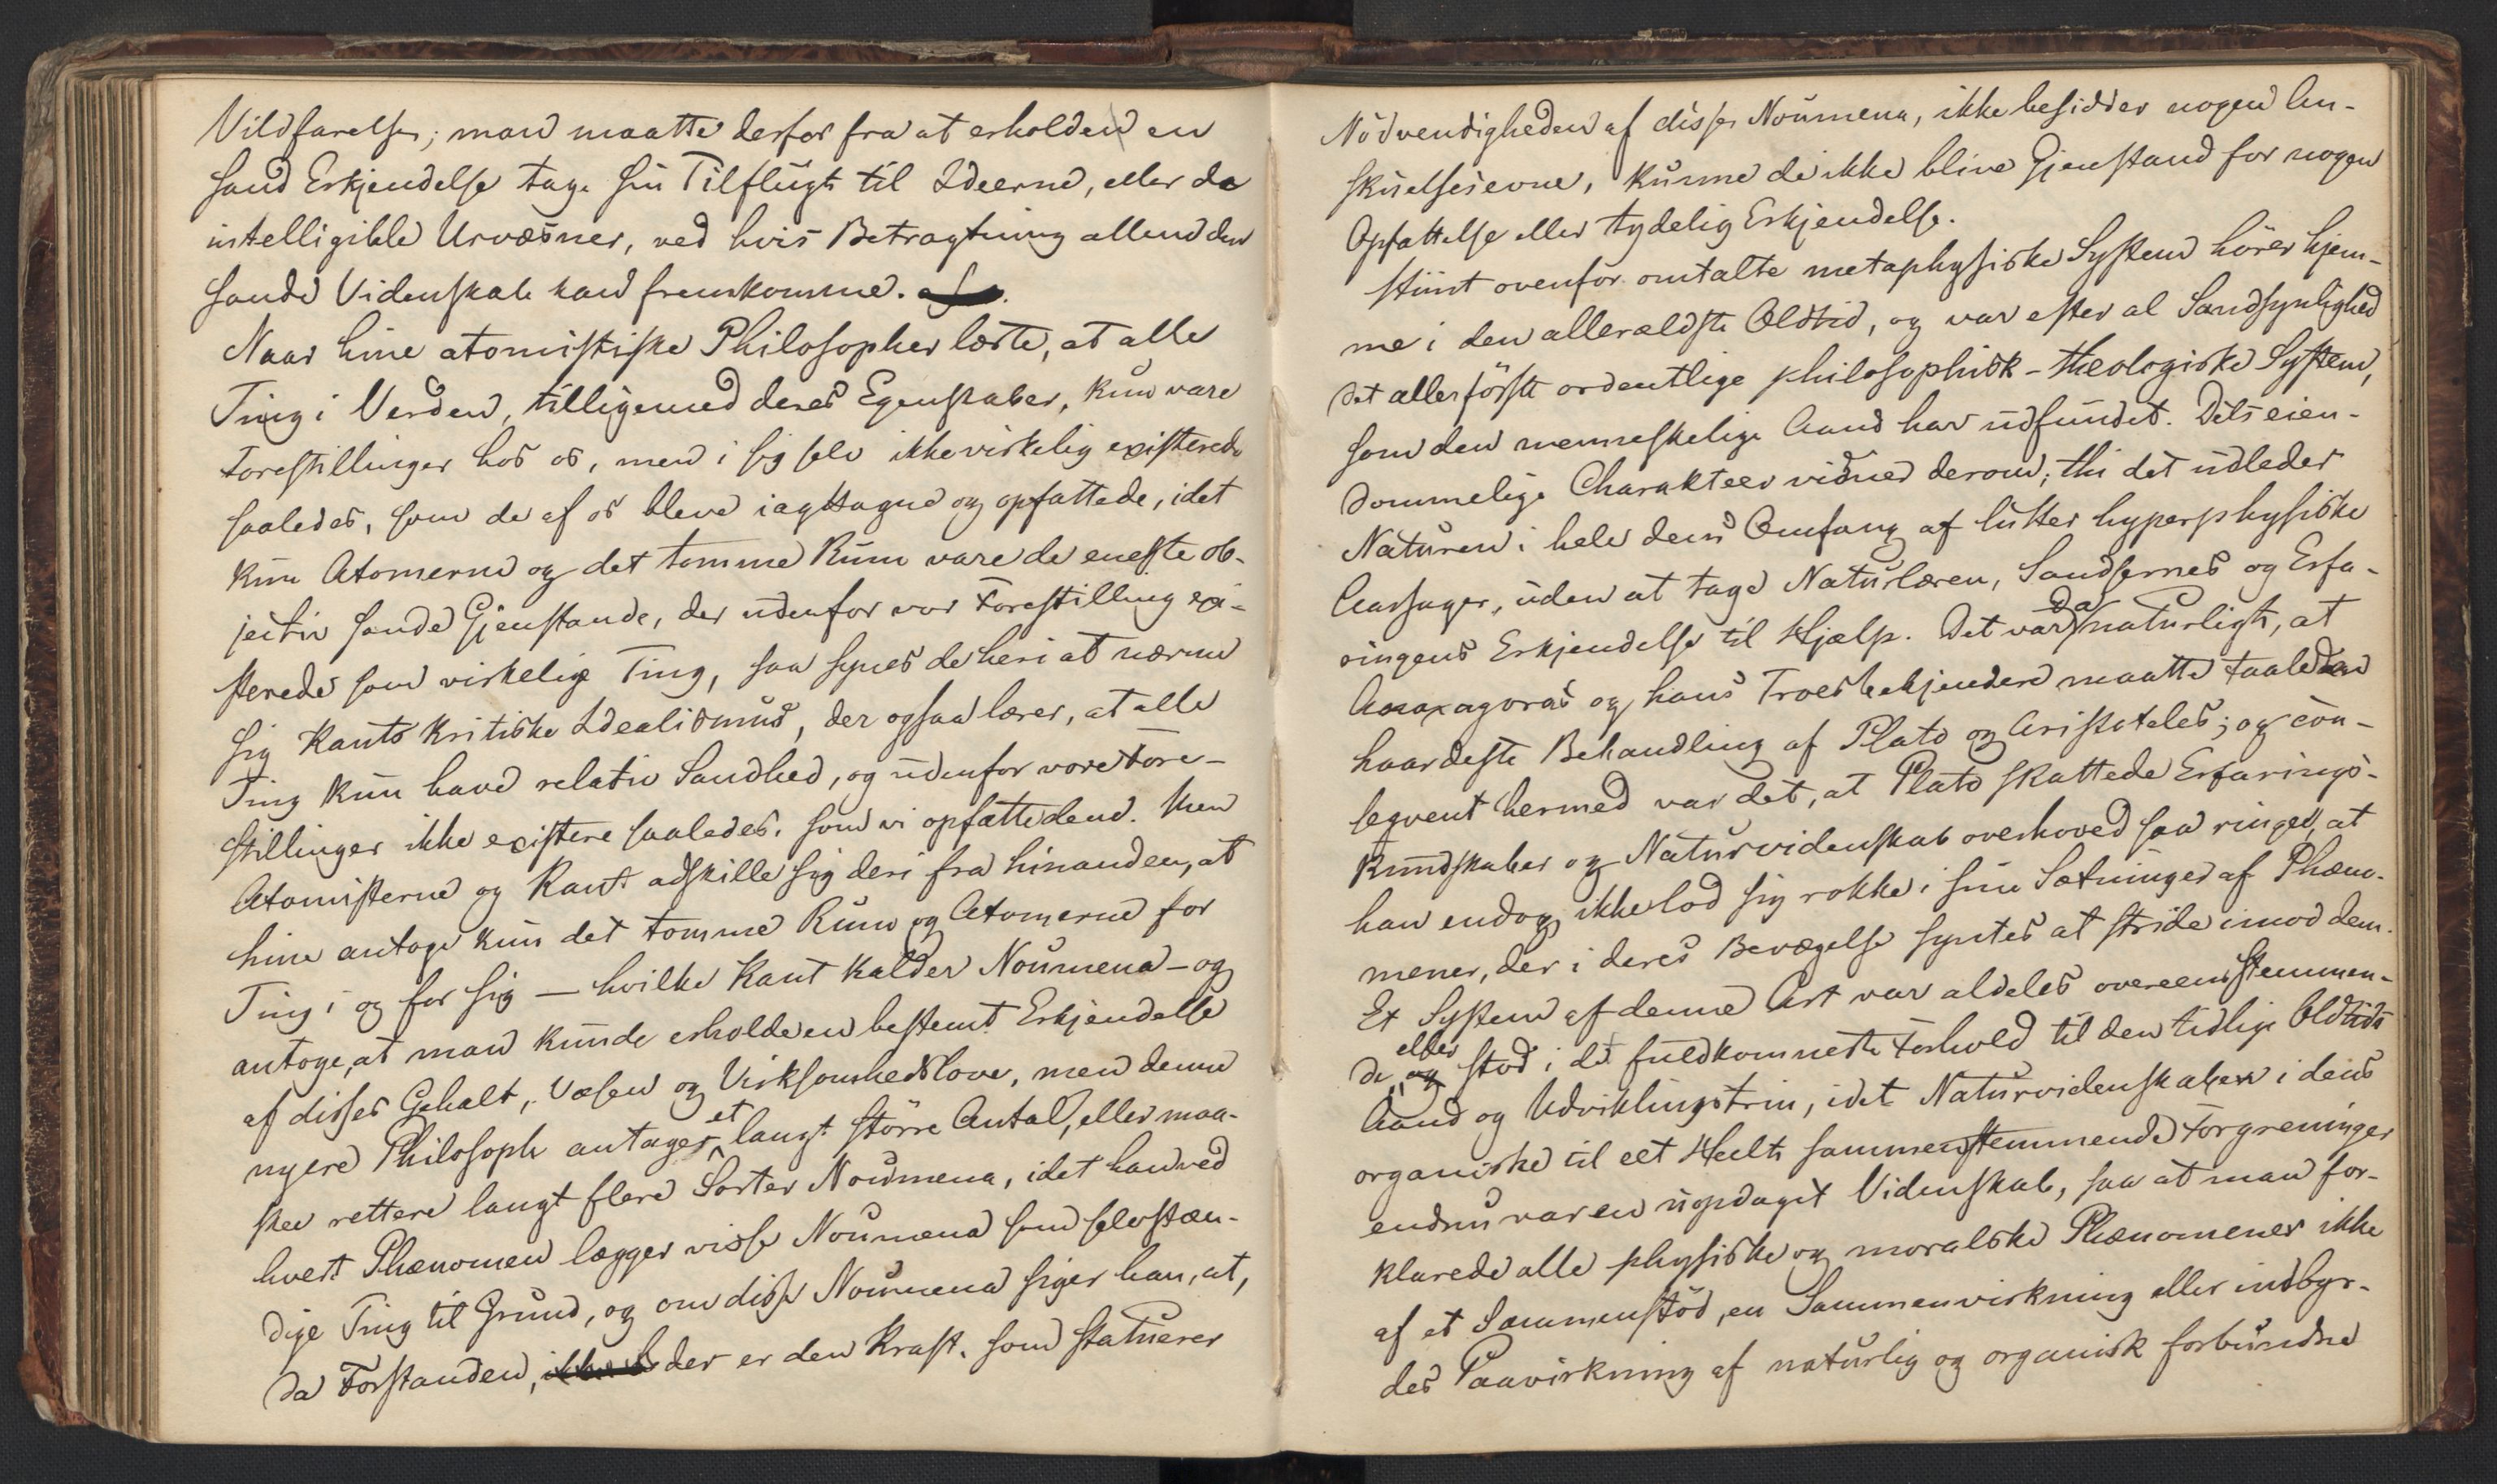 Vildfarelse; man maatte derfor fra at erholden en
sand Erkjendelse tage sin Tilflugt til Ideerne, eller de
intelligible Urvæsner, ved hvis Betragtning allene den
sande Videnskab kan fremkomme.
Naar hine atomistiske Philosopher lærte, at alle
Ting i Verden, tilligemed deres Egenskaber, kun vare
Forestillinger hos os, men i sig selv ikke virkelig existerede
saaledes, som de af os bleve iagttagne og opfattede, idet
kun Atomerne og det tomme Rum vare de eneste ob-
jectiv sande Gjenstande, der udenfor vor Forestilling exi-
sterede som virkelige Ting, saa synes de heri at nærme
sig Kants kritiske Idealismus, der ogsaa lærer, at alle
Ting kun have relativ Sandhed, og udenfor vore Fore-
stillinger ikke existere saaledes, som vi opfatte dem. Men
Atomisterne og Kant adskille sig deri fra hinanden, at
hine antoge kun det tomme Rum og Atomerne for
Ting i og for sig — hvilke Kant kalder Noumena — og
antoge, at man kunde erholde en bestemt Erkjendelse
af disses Gehalt, Væsen og Virksomhedslove, men denne
nyere Philosoph antager et langt större Antal, eller maa-
skee rettere langt flere Sorter Noumena, idet han ved
hvert Phænomen lægger visse Noumena som selvstæn-
dige Ting til Grund, og om disse Noumena siger han, at,
da Forstanden, der er den Kraft, som statuerer
Nödvendigheden af disse Noumena, ikke besidder nogen An-
skuelsesevne, kunne de ikke blive Gjenstand for nogen
Opfattelse eller tydelig Erkjendelse.
Hiint ovenfor omtalte metaphysiske System hörer hjem-
me i den allerældste Oldtid, og var efter al Sandsynlighed
det allerförste ordentlige philosophisk-theologiske System,
som den menneskelige Aand har udfundet. Dets eien-
dommelige Charakteer vidner derom; thi det udleder
Naturen i hele dens Omfang af lutter hyperphysiske
Aarsager, uden at tage Naturlæren, Sandsernes og Erfa-
ringens Erkjendelse til Hjælp. Det var da naturligt, at
Anaxagoras og hans Troesbekjendere maatte taale den
haardeste Behandling af Plato og Aristoteles; og con-
seqvent hermed var det, at Plato skattede Erfarings-
kundskaber og Naturvidenskab overhoved saa ringe, at
han endog ikke lod sig rokke i sine Sætninger af Phæno-
mener, der i deres Bevægelse syntes at stride imod dem.
Et System af denne Art var aldeles overeensstemmen-
de, eller og stod i det fuldkomneste Forhold til den tidlige Oldtids
Aand og Udviklingstrin, idet Naturvidenskaben i dens
organiske til eet Heelt sammenstemmende Forgreninger
endnu var en uopdaget Videnskab, saa at man for-
klarede alle physiske og moralske Phænomener ikke
af et Sammenstöd, en Sammenvirkning eller indbyr-
des Paavirkning af naturlig og organisk forbundne